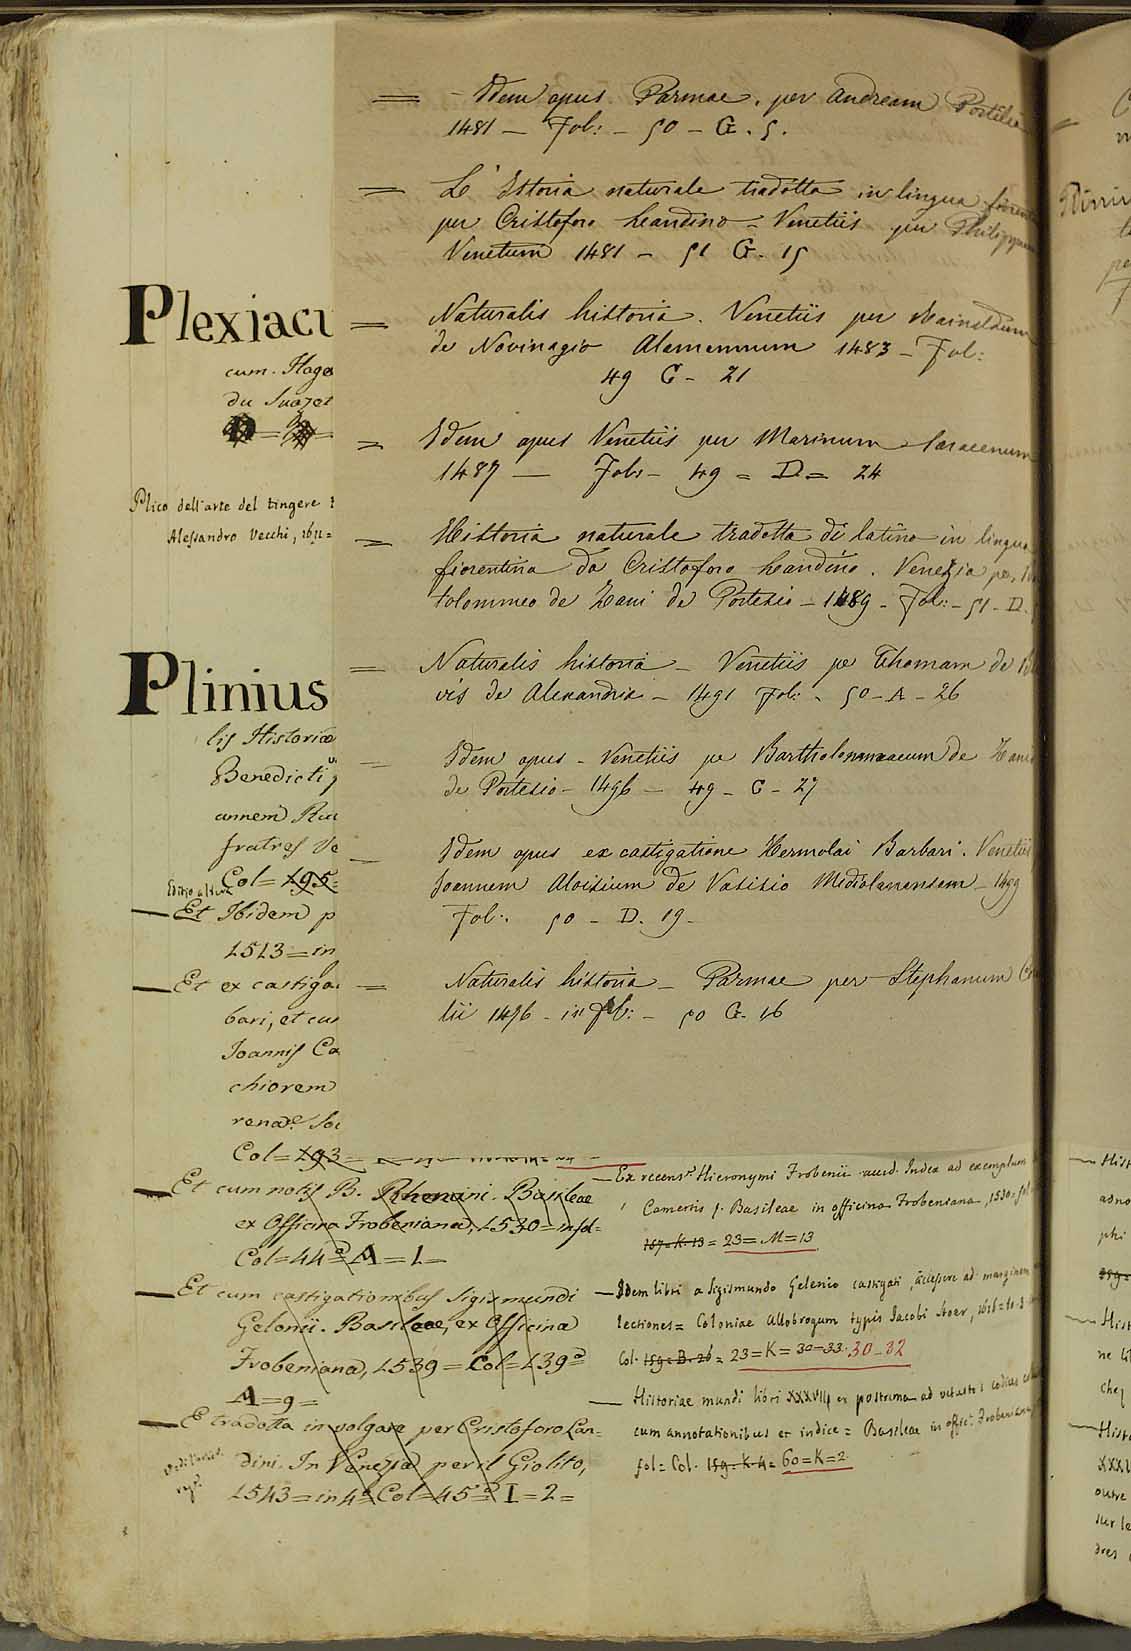 = - Idem opus Parmae, per Andream Portilia
1481 - Fol: - 50 - G. 5.
= L'Istoria naturale tradotta in lingua
per Cristoforo Leandino - Venetiis per Philippum
Venetum 1481 - 51 G. 15
= Naturalis historia. Venetiis per Mainaldum
de Novimagio Alemannum 1483 - Fol:
49 C - 21
= Idem opus Venetiis per Marinum Saracenum
1487 - Fol: - 49 = D = 24
= Historia naturale tradotta di latino in lingua
fiorentina da Cristoforo Leandino. Venezia per
tolommeo de Zani de Portesio - 1489 - Fol: - 51 - D.
= Naturalis historia - Venetiis pe Thomam de
vis de Alexandria - 1491 Fol: - 50 - A - 26
- Idem opus - Venetiis pe Bartholommaeum de Zani
de Portesio - 1496 - 49 - C - 27
- Idem opus ex castigatione Hermolai Barbari. Venetiis
Joannem Aloisium de Vasisio Mediolanensem - 1499
Fol: 50 - D. 19 -
= Naturalis historia - Parmae per Stephanum
lii 1496 - in Fol: - 50 G. 16
Plexiacu
cum. Hage
du
Plico dell'arte del tingere
Alessandro Vecchi, 1611=
Plinius
lis Historiæ
Benedicti
annem Ru
fratres Ve
Col = 195=
Editio altera
- Et Ibidem p
1513 = in
- Et ex castiga
bari, et cu
Joannis Ca
chiorem
renae. So
Col = 193
- Et cum notis B. Rhenani. Basileae
ex Officina Frobeniana, 1530 = in fol=
Col = 44 = A = 1 =
- Et cum castigationibus Sigismundi
Gelenii. Basileae, ex Officina
Frobeniana, 1539 = Col = 139
A = 9 =
- E tradotta in volgare per Cristoforo Lan=
dini. In Venezia per il Giolito,
1543 = in 4° Col = 45 I = 2 =
- Ex recens. Hieronymi Frobenii Index ad exemplum
Camertis f. Basileae in officina Frobeniana, 1530. fol
167 = K. 13 = 23 = M = 13
- Idem libri a Sigismundo Gelenio castigati, accessere ad marginem
lectiones = Coloniae Allobrogum typis Jacobi Stoer, 1616 =
Col. 159 = B. 26 = 23 = K = 30-33. 30-32
- Historiae mundi libri XXXVII ex postrema ad vetustos codices
cum annotationibus et indice = Basileae in offic. Frobeniana
fol = Col. 159 = K. 4 = 60 = K = 2.
- Hist
adno
phi
- Hist
ne li
chez
- Histo
XXXV
outre
sur le
dres